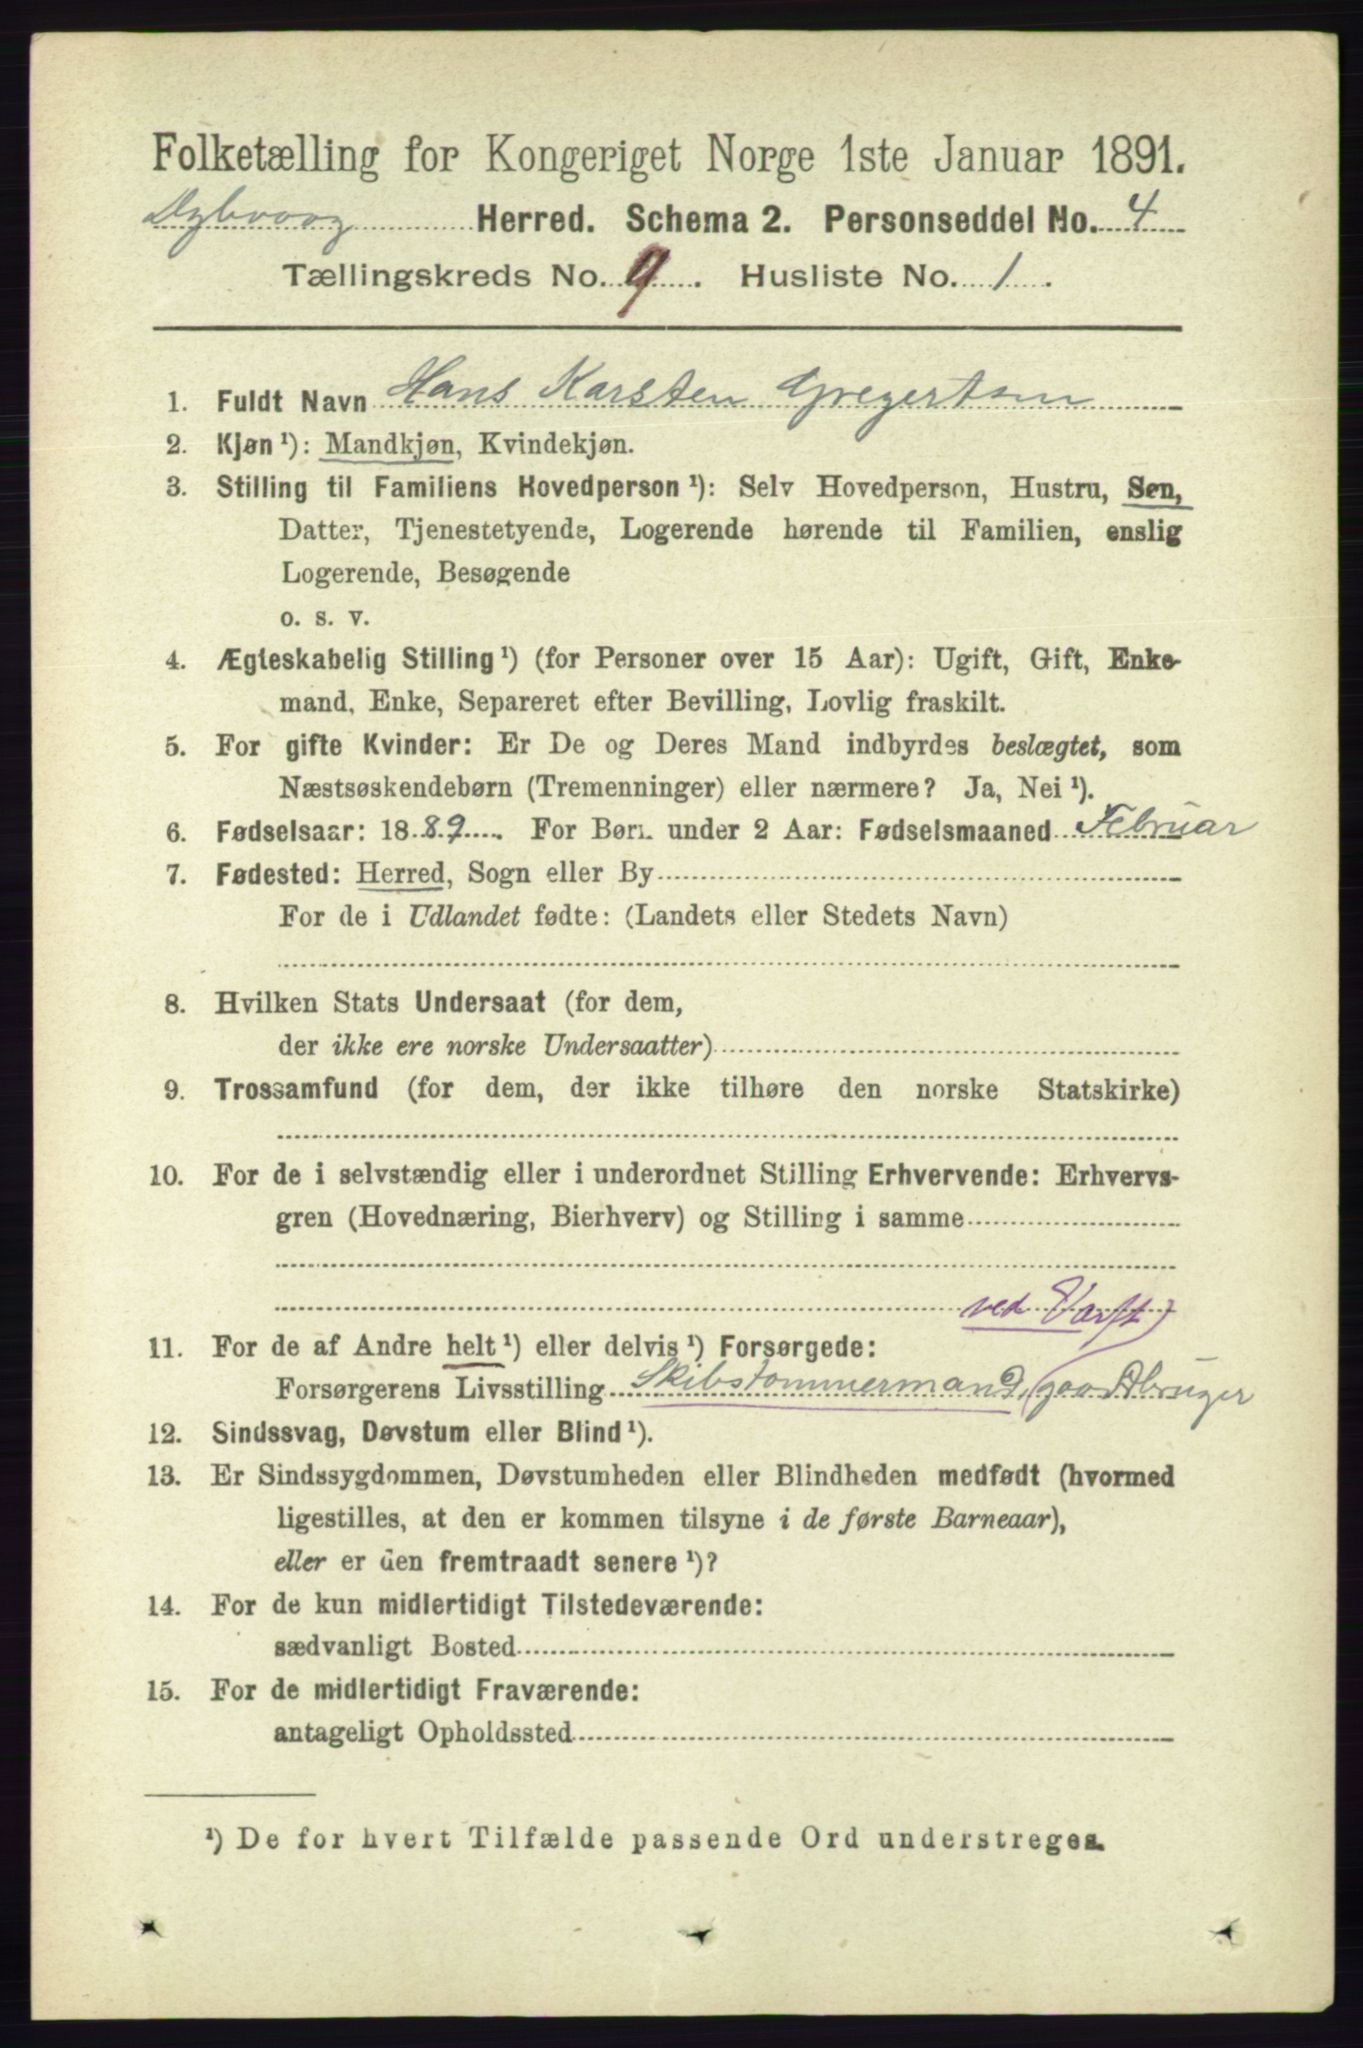 Folketælling for Kongeriget Norge 1ste Januar 1891.
Dybvaag Herred. Schema 2. Personseddel No. 4
Tællingskreds No. 9. Husliste No. 1.
1. Fuldt Navn Hans Karsten Gregertsen
2. Kjøn¹): Mandkjøn, Kvindekjøn.
3. Stilling til Familiens Hovedperson¹): Selv Hovedperson, Hustru, Søn,
Datter, Tjenestetyende, Logerende hørende til Familien, enslig
Logerende, Besøgende
o. s. v.
4. Ægteskabelig Stilling¹) (for Personer over 15 Aar): Ugift, Gift, Enke-
mand, Enke, Separeret efter Bevilling, Lovlig fraskilt.
5. For gifte Kvinder: Er De og Deres Mand indbyrdes beslægtet, som
Næstsøskendebørn (Tremenninger) eller nærmere? Ja, Nei¹).
6. Fødselsaar: 1889. For Børn under 2 Aar: Fødselsmaaned Februar
7. Fødested: Herred, Sogn eller By
For de i Udlandet fødte: (Landets eller Stedets Navn)
8. Hvilken Stats Undersaat (for dem,
der ikke ere norske Undersaatter)
9. Trossamfund (for dem, der ikke tilhøre den norske Statskirke)
10. For de i selvstændig eller i underordnet Stilling Erhvervende: Erhvervs-
gren (Hovednæring, Bierhverv) og Stilling i samme
ved Værft
11. For de af Andre helt¹) eller delvis¹) Forsørgede:
Forsørgerens Livsstilling Skibstømmermand,
12. Sindssvag, Døvstum eller Blind¹).
13. Er Sindssygdommen, Døvstumheden eller Blindheden medfødt (hvormed
ligestilles, at den er kommen tilsyne i de første Barneaar),
eller er den fremtraadt senere¹)?
14. For de kun midlertidigt Tilstedeværende:
sædvanligt Bosted
15. For de midlertidigt Fraværende:
antageligt Opholdssted
¹) De for hvert Tilfælde passende Ord understreges.